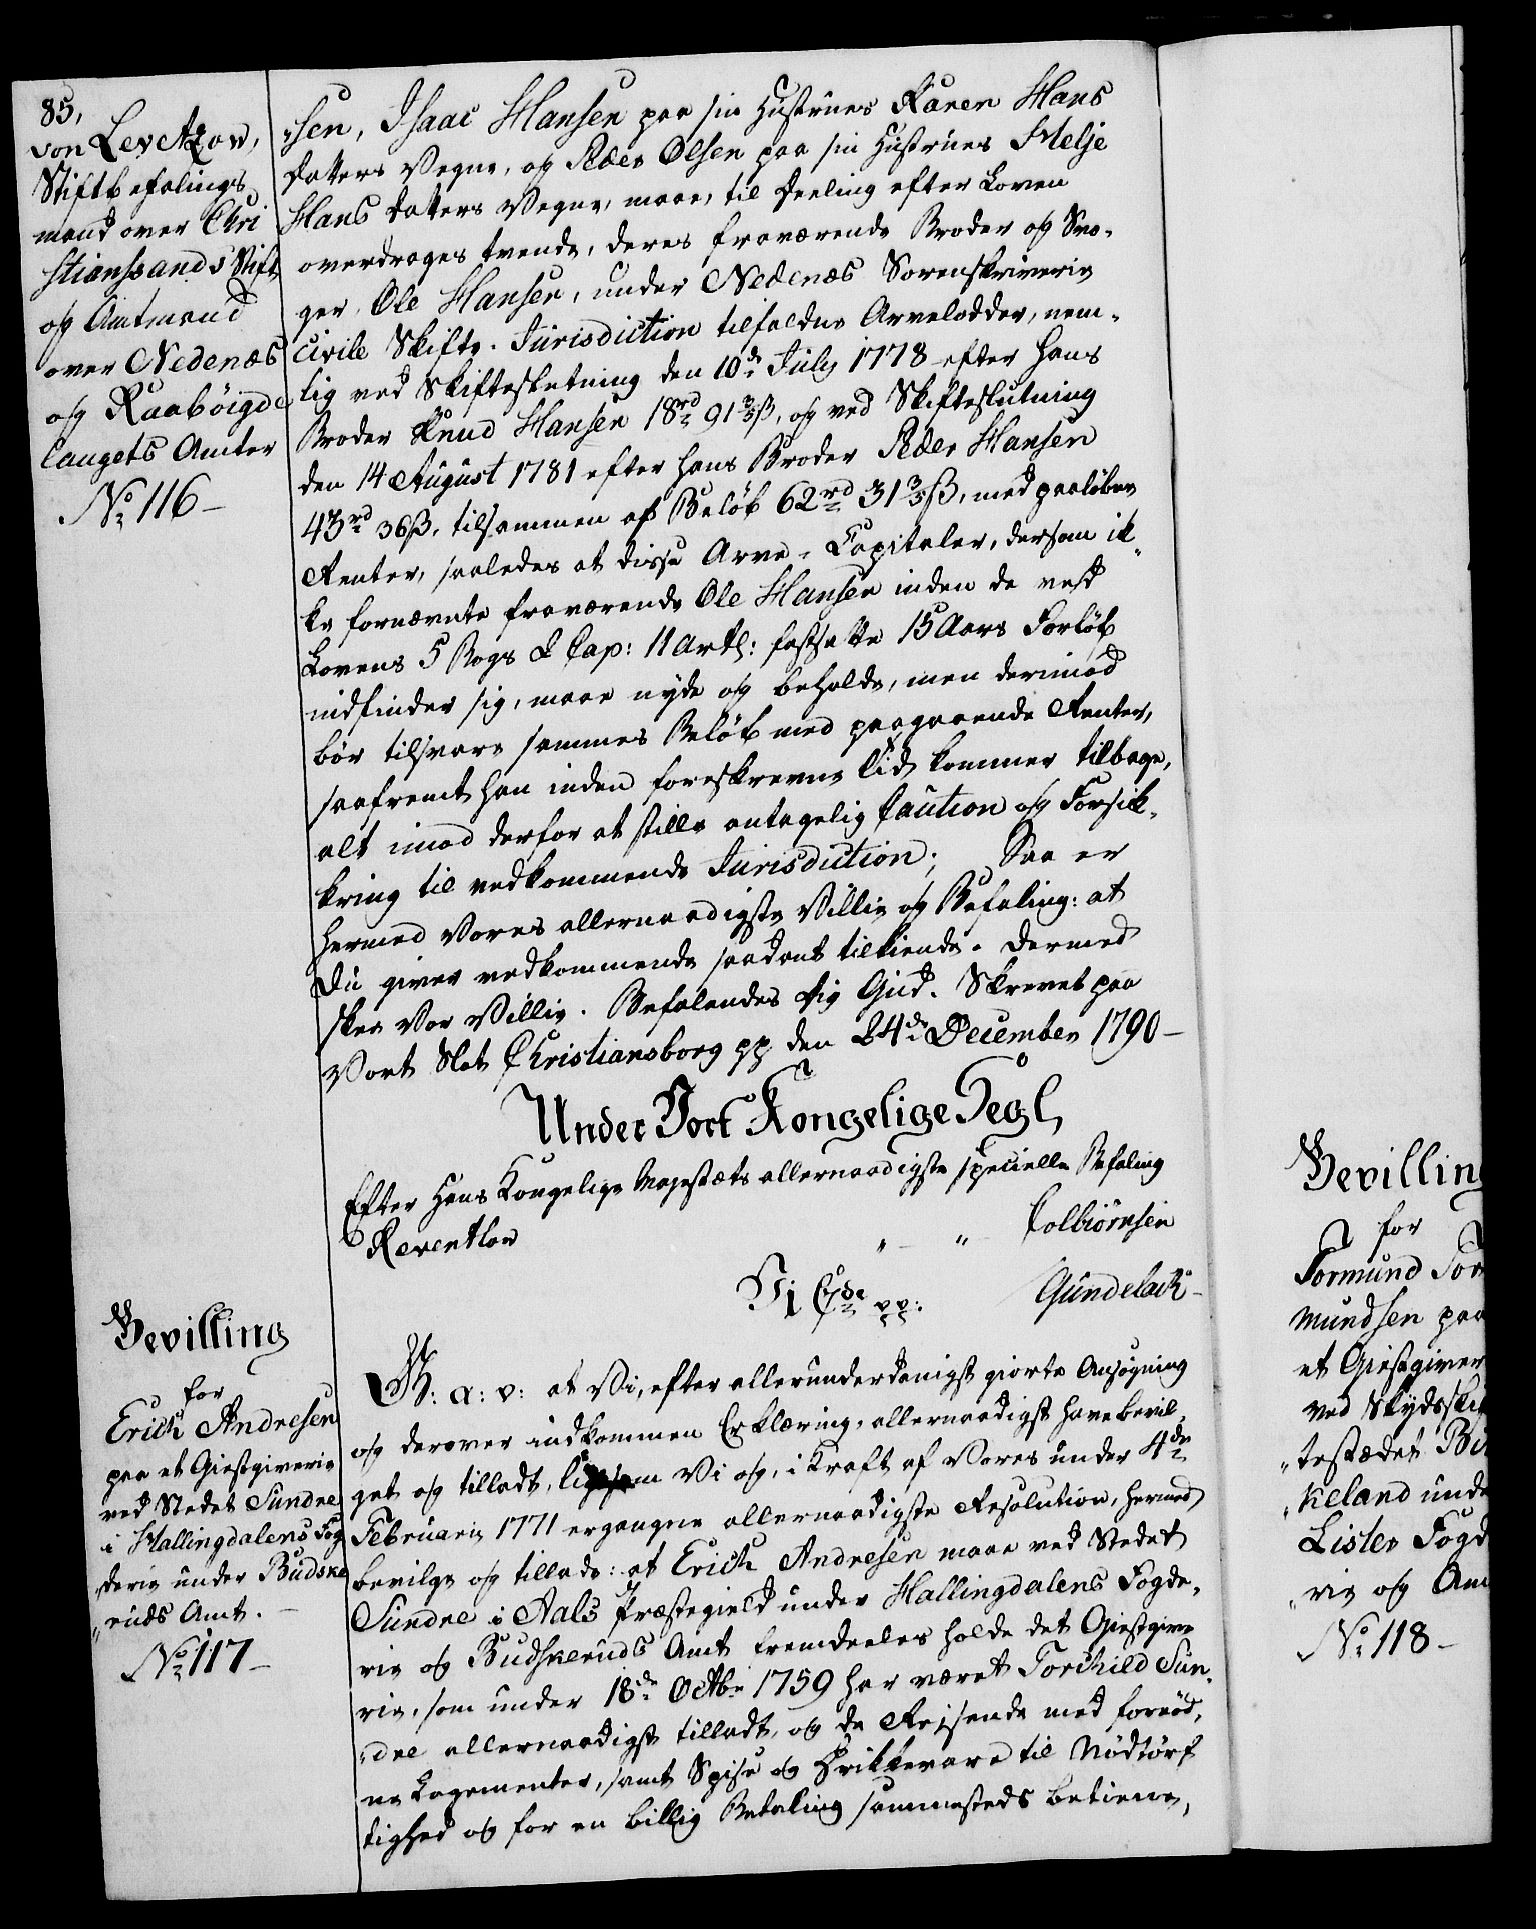 85,
von Levetzow,
Stiftbefalings
mand over Chri
stianssands Stift
og Amtmand
over Nedenæs
og Raabøigde
laugets Amter
No 116 –
„sen, Isaac Hansen paa sin Hustrues Karen Hans
datters Vegne, og Peder Olsen paa sin Hustrues Helje
Hans datters Vegne, maae, til Deeling efter Loven
overdrages tvende, deres fraværende Broder og Svo-
ger, Ole Hansen, under Nedenæs Sorenskriverie
civile Skifte-Jurisdiction tilfaldne Arvelodder, nem-
lig ved Skifteslutning den 10de July 1778 efter hans
Broder Knud Hansen 18rd 91 3/5 ß, og ved Skifteslutning
den 14 August 1781 efter hans Broder Peder Hansen
43rd 36ß, tilsammen af Beløb 62rd 31 3/5 ß, med paaløbne
Renter, saaledes at disse Arve-Capitaler, dersom ik-
ke fornævnte fraværende Ole Hansen inden de ved
Lovens 5 Bogs 2 Cap: 11 Artl: fastsatte 15 Aars Forløb
indfinder sig, maae nyde og beholde, men derimod
bør tilsvare sammes Beløb med paagaaende Renter,
saafremt han inden foreskrevne Tid kommer tilbage,
alt imod derfor at stille antagelig Caution og Forsik-
kring til vedkommende Jurisdiction; Saa er
hermed Vores allernaadigste Villie og Befaling: at
Du giver vedkommende saadant tilkiende. Dermed
skeer Vor Villie. Befalendes Dig Gud. Skrevet paa
Vort Slot Christiansborg pp den 24de December 1790 –
Under Vort Kongelige Segl,
Efter Hans Kongelige Majestæts allernaadigste specielle Befaling
Reventlow „ – „ Colbiørnsen
Gundelach –
Vi C 7de pp:
Bevilling
for
Erich Andresen
paa et Giestgiverie
ved Stedet Sundre
i Hallingdalens Fog
„derie under Budske
„ruds Amt. –
No 117 –
G: a: v: at Vi, efter allerunderdanigst giorte Ansøgning
og derover indkommen Erklæring, allernaadigst have bevil-
get og tilladt, ligesom Vi og, i Kraft af Vores under 4de
Februarii 1771 ergangne allernaadigste Resolution, hermed
bevilge og tillade: at Erich Andresen maae ved Stedet
Sundre i Aals Præstegield under Hallingdalens Fogde-
rie og Budskeruds Amt fremdeeles holde det Giestgive
rie, som under 18de Octbr 1759 har været Torchild Sun-
„dre allernaadigst tilladt, og de Reisende med fornød-
ne Logementer, samt Spise og Drikkevare til Nødtørf
tighed og for en billig Betaling sammesteds betiene,
Bevilling
for
Tormund Tor
mundsen paa
et Giestgiver
ved Skydsski
„testædet Bi
„keland unde
Lister Fogd
„rie og Am
No 118 –